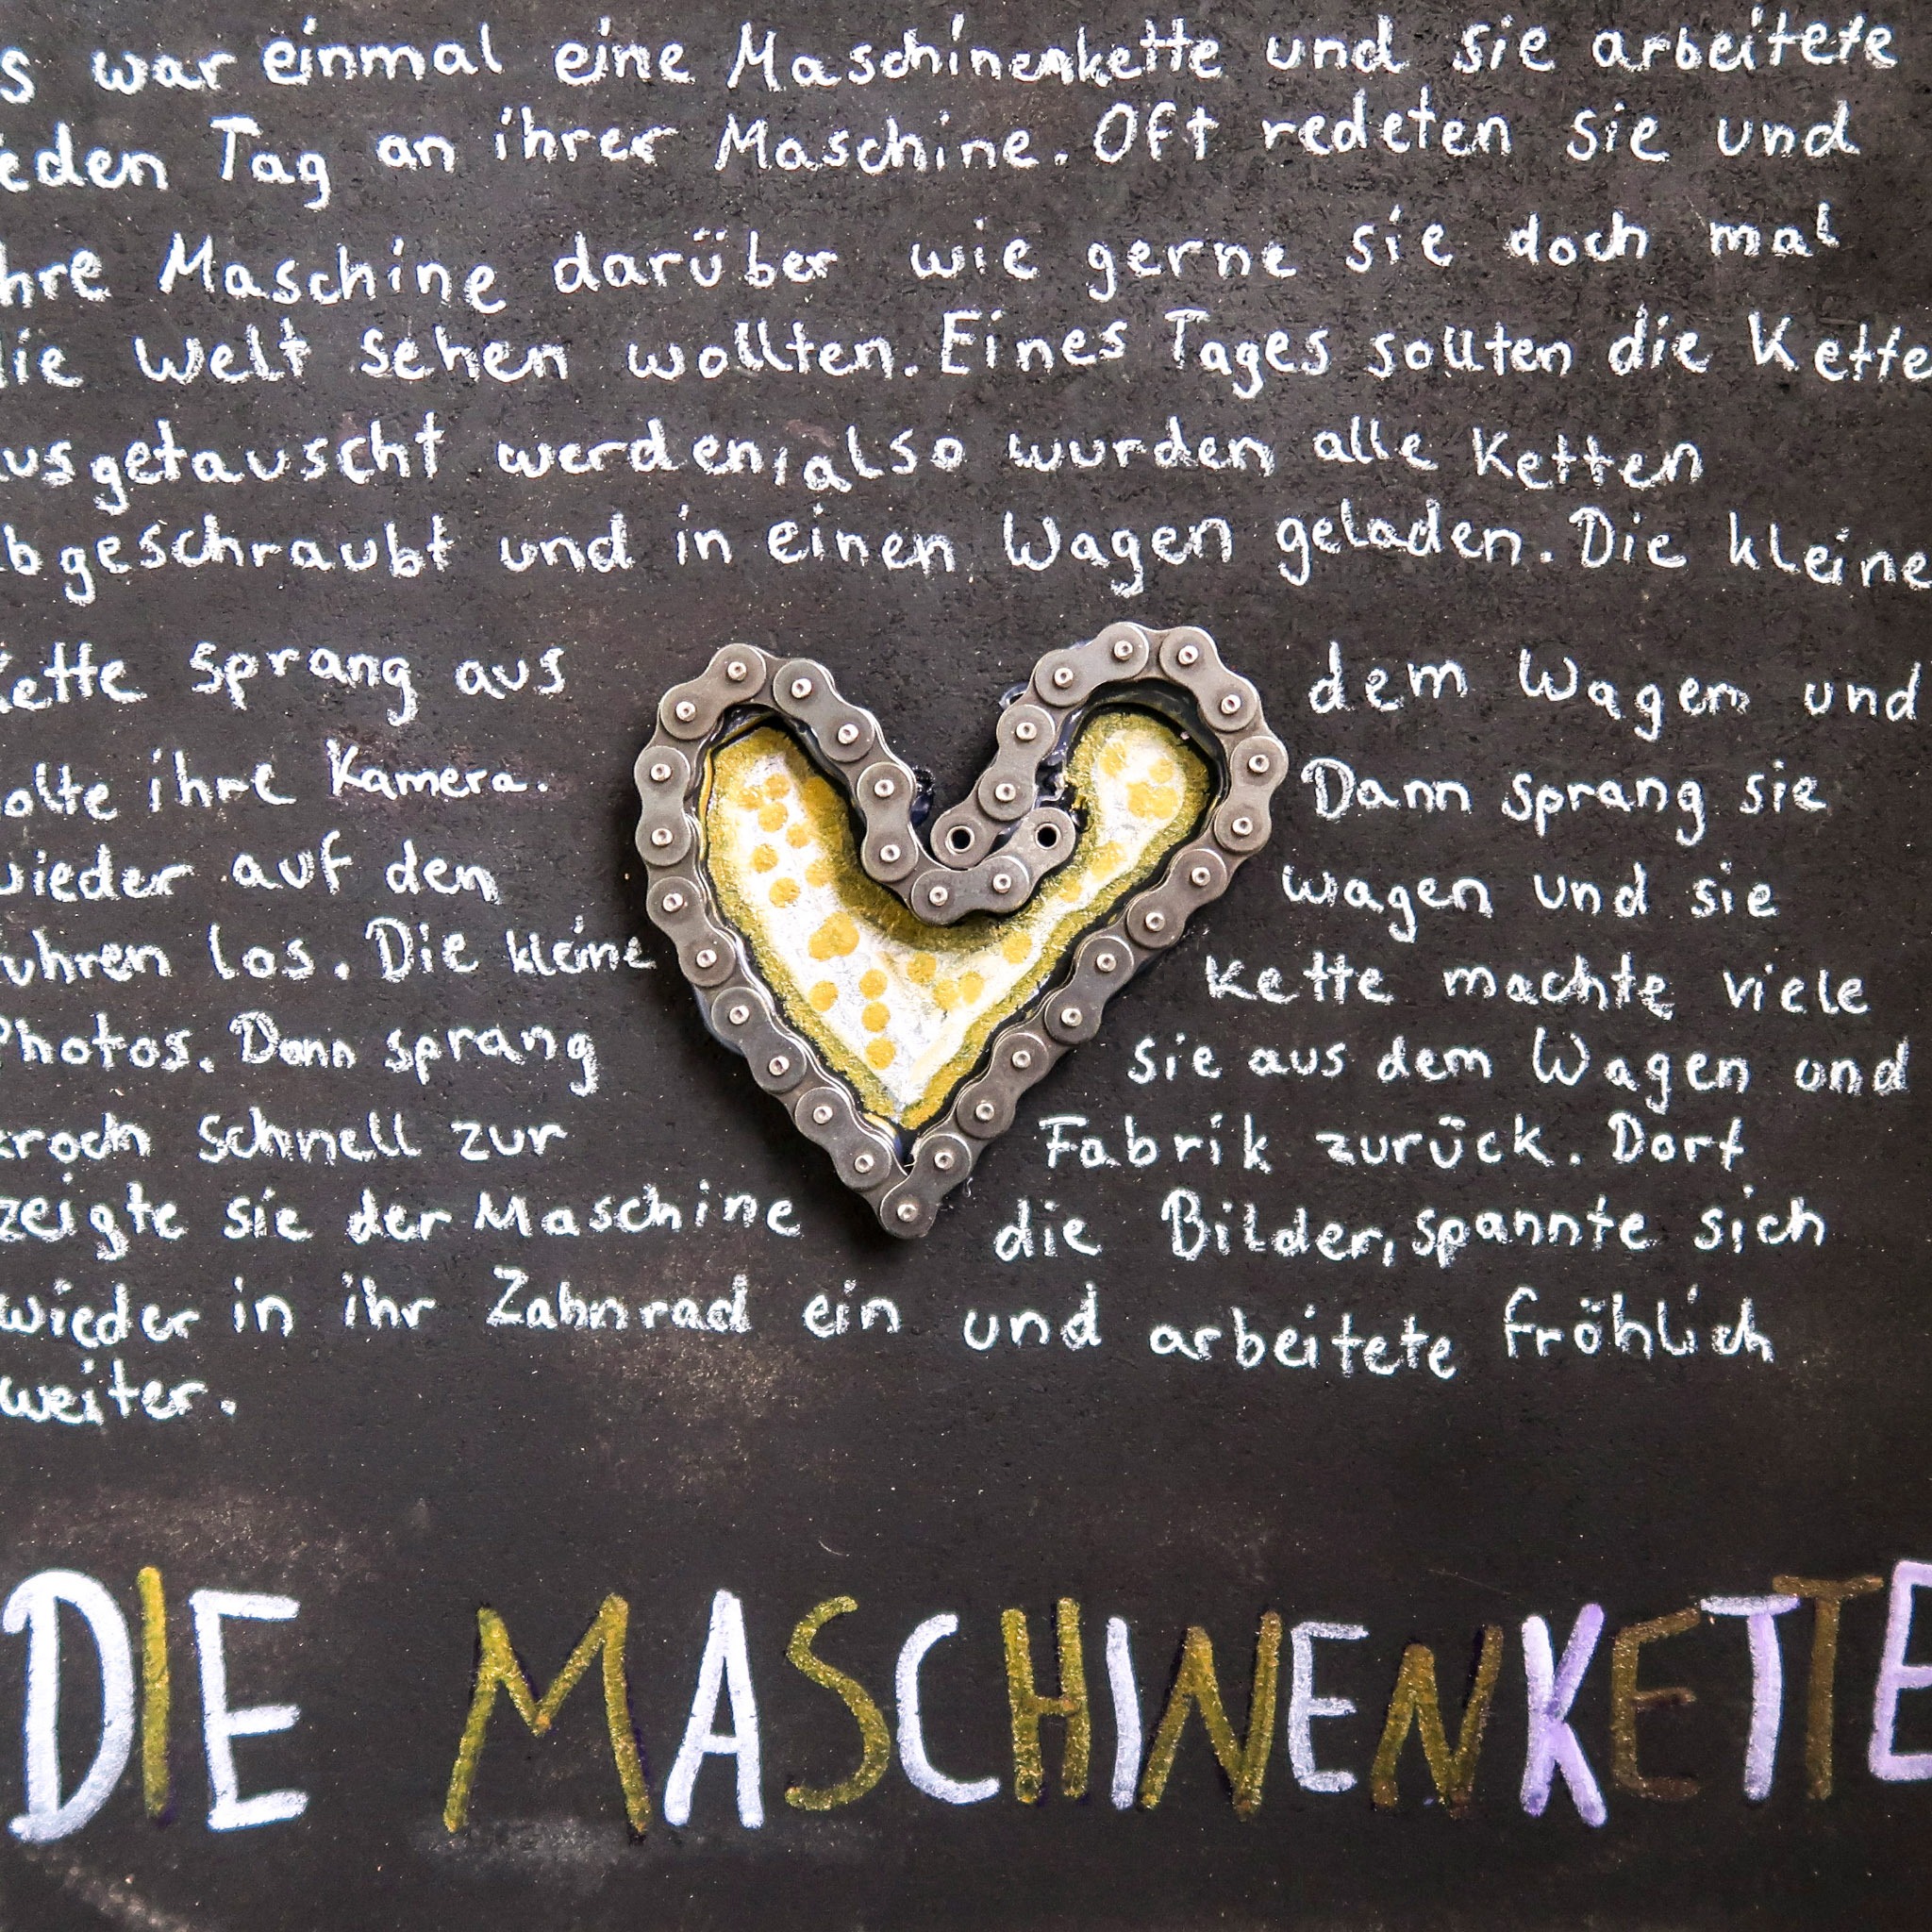 s war einmal eine Maschinenkette und sie arbeitete
eden Tag an ihrer Maschine. Oft redeten sie und
hre Maschine darüber wie gerne sie doch mal
die Welt sehen wollten. Eines Tages sollten die Kette
usgetauscht werden, also wurden alle Ketten
bgeschraubt und in einen Wagen geladen. Die kleine
ette sprang aus dem Wagen und
olte ihre Kamera. Dann sprang sie
wieder auf den wagen und sie
uhren los. Die kleine Kette machte viele
Photos. Dann sprang sie aus dem Wagen und
kroch schnell zur Fabrik zurück. Dort
zeigte sie der Maschine die Bilder, spannte sich
wieder in ihr Zahnrad ein und arbeitete fröhlich
weiter.
DIE MASCHINENKETTE